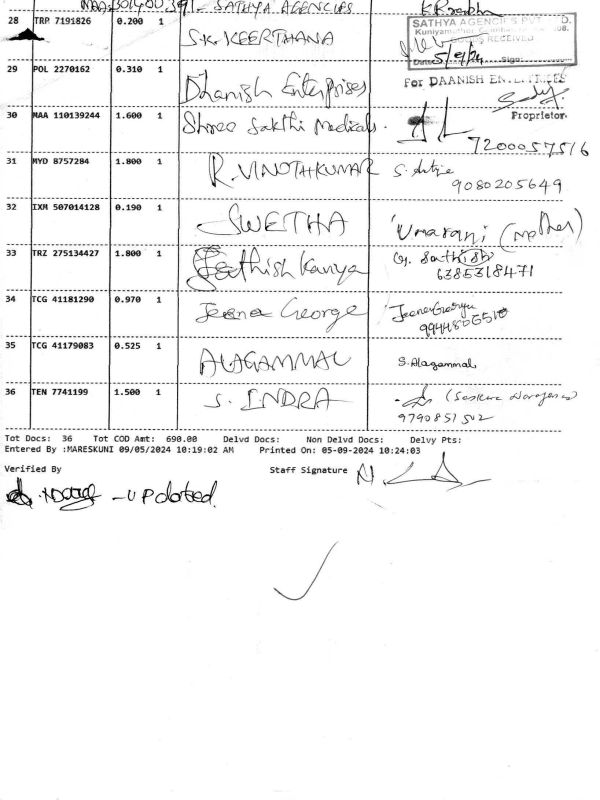 SATHYA AGENCIES
28 TRP 7191826 0.200 1 S.K. KEERTHANA
SATHYA AGENCIES PVT. D.
RECEIVED
Date 5/9/24 Sign:
29 POL 2270162 0.310 1 Dhanish Enterprises
For DAANISH ENTERPRISES
Proprietor
30 MAA 110139244 1.600 1 Shree Sakthi Medicals.
7200057516
31 MYD 8757284 1.800 1 R. VINOTHKUMAR
9080205649
32 IXM 507014128 0.190 1 SWETHA Umarani (Mother)
33 TRZ 275134427 1.800 1 Sathish Kanya G. Sathish
6385318471
34 TCG 41181290 0.970 1 Jeena George Jeena George
35 TCG 41179083 0.525 1 ALAGAMMAL S. Alagammal
36 TEN 7741199 1.500 1 S. INDRA
9790851502
Tot Docs: 36 Tot COD Amt: 690.00 Delvd Docs: Non Delvd Docs: Delvy Pts:
Entered By :MARESKUNI 09/05/2024 10:19:02 AM Printed On: 05-09-2024 10:24:03
Verified By Staff Signature
- Updated